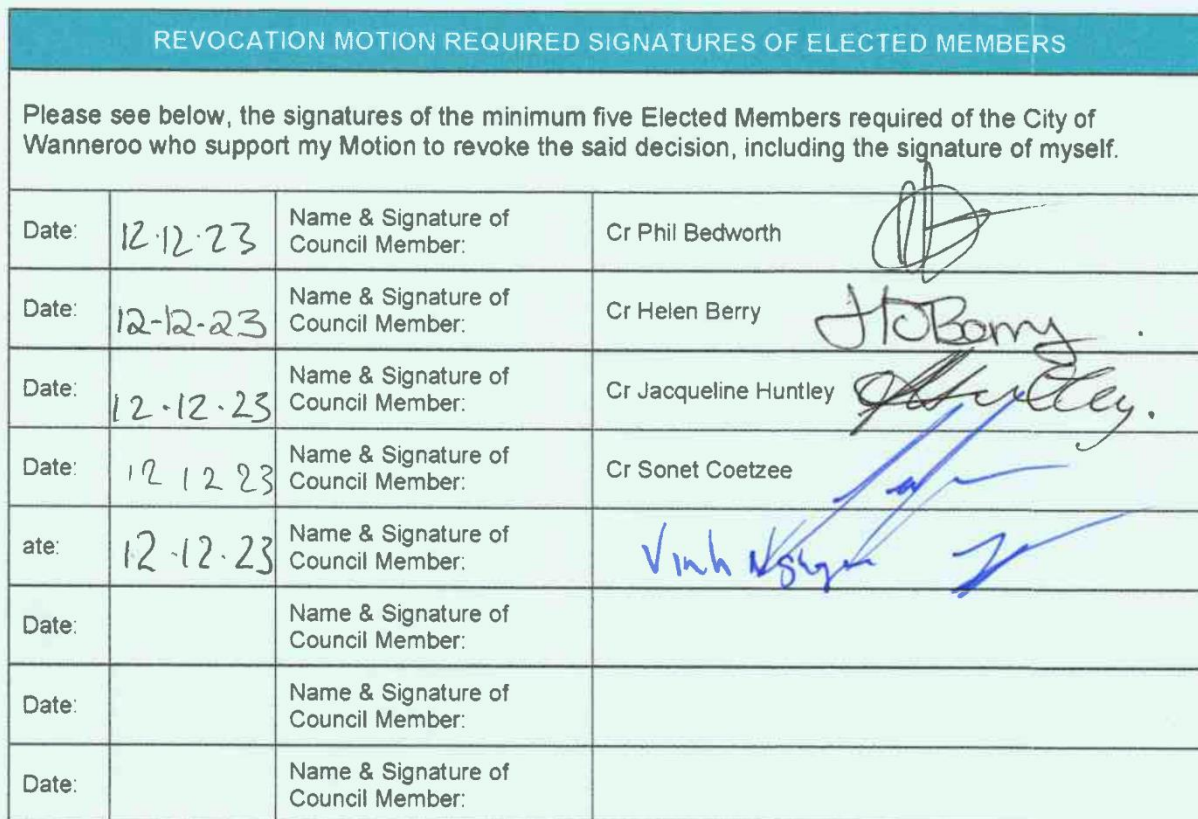 REVOCATION MOTION REQUIRED SIGNATURES OF ELECTED MEMBERS
Please see below, the signatures of the minimum five Elected Members required of the City of
Wanneroo who support my Motion to revoke the said decision, including the signature of myself.
Date: 12.12.23 Name & Signature of
Council Member: Cr Phil Bedworth
Date: 12-12-23 Name & Signature of
Council Member: Cr Helen Berry HJBerry
Date: 12.12.23 Name & Signature of
Council Member: Cr Jacqueline Huntley
Date: 12 12 23 Name & Signature of
Council Member: Cr Sonet Coetzee
ate: 12.12.23 Name & Signature of
Council Member: Vinh Nguyen
Date: Name & Signature of
Council Member:
Date: Name & Signature of
Council Member:
Date: Name & Signature of
Council Member: